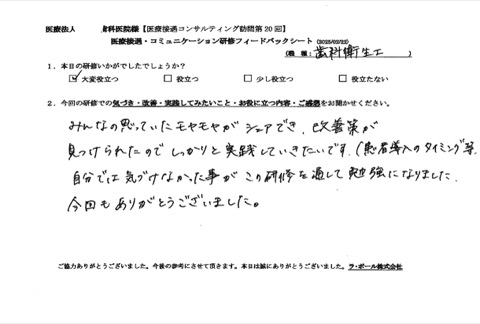 医療法人　歯科医院様【医療接遇コンサルティング訪問第20回】
医療接遇・コミュニケーション研修フィードバックシート（2025/02/22）
（職種：歯科衛生士）
1．本日の研修いかがでしたでしょうか？
☑大変役立つ　□役立つ　□少し役立つ　□役立たない
2．今回の研修での気づき・改善・実践してみたいこと・お役に立つ内容・ご感想をお聞かせください。
みんなの思っていたモヤモヤがシェアでき、改善策が
見つけられたのでしっかりと実践していきたいです。（患者導入のタイミング等
自分では気づけなかった事がこの研修を通して勉強になりました。
今回もありがとうございました。
ご協力ありがとうございました。今後の参考にさせて頂きます。本日は誠にありがとうございました。ラ・ポール株式会社